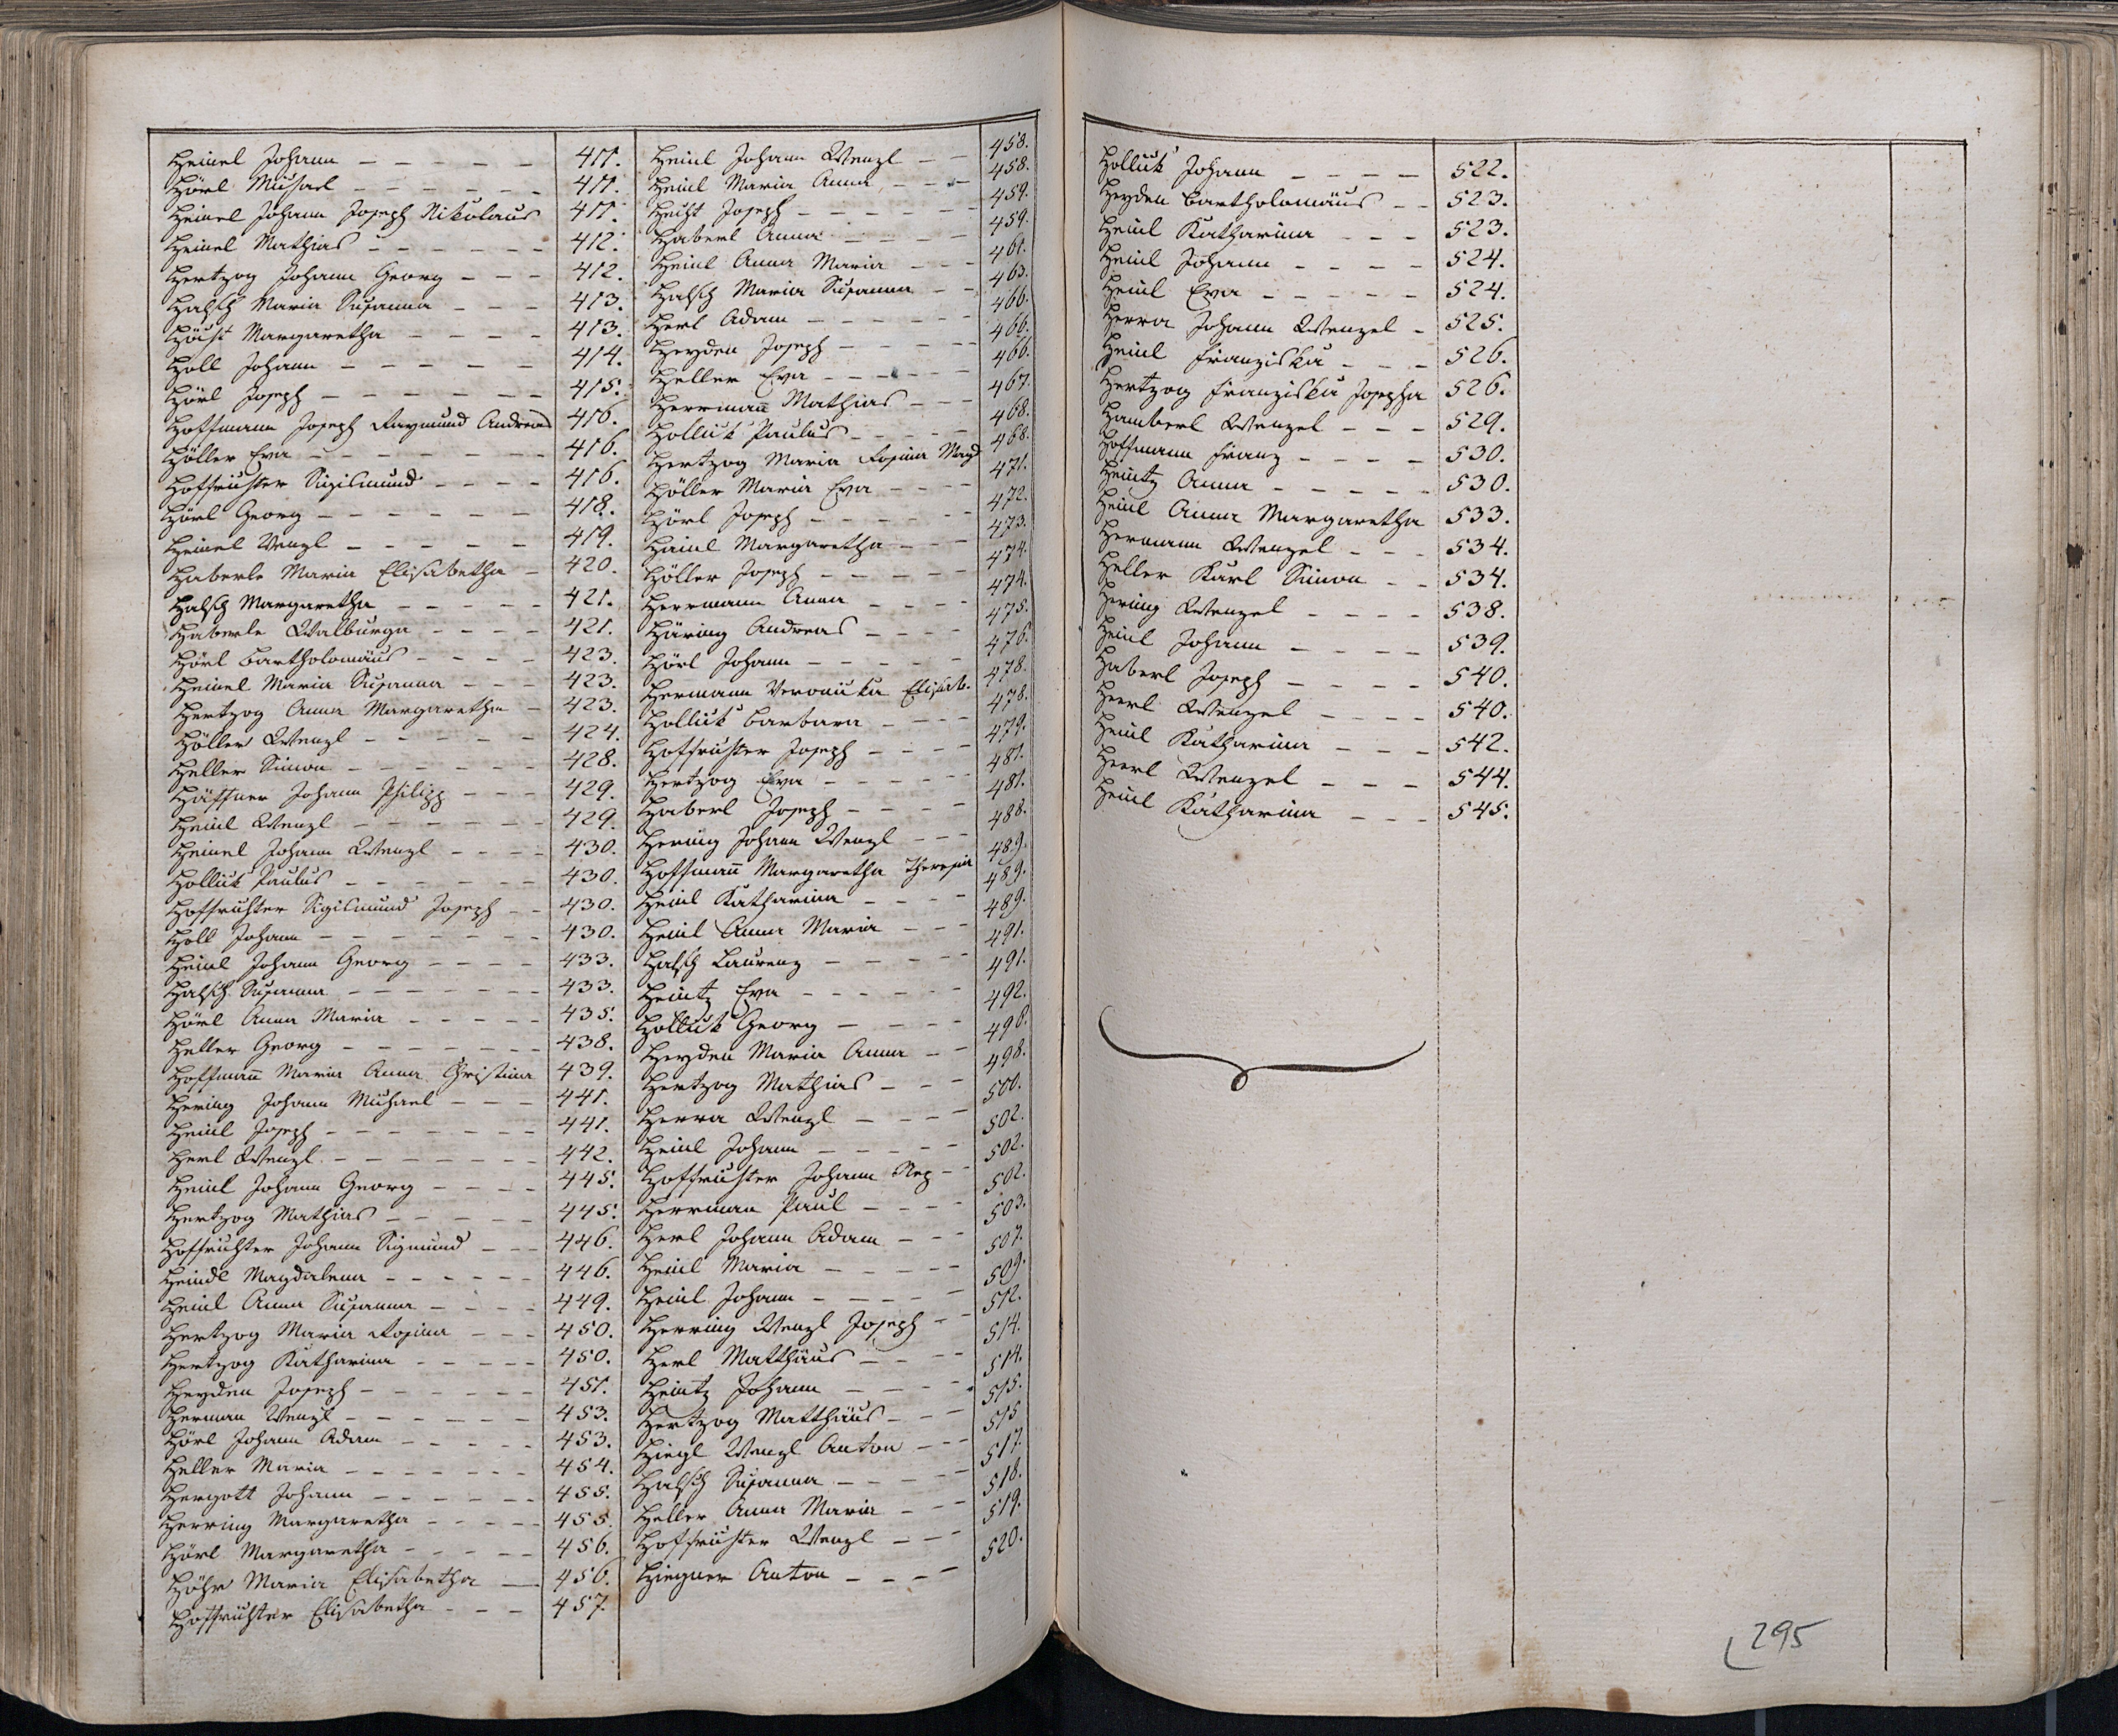 Heinel Johann 411.
Hörl Michael 411.
Heinel Johann Joseph Nikolaus 411.
Heinel Mathias 412.
Hertzog Johann Georg 412.
Halsch Maria Susanna 413.
Margaretha 413.
Holl Johann 414.
Hörl Joseph 415.
Hoffmann Joseph Raymund Andreas 416.
Höller Eva 416.
Hoffrichter Sigismund 416.
Hörl Georg 418.
Heinel Wenzl 419.
Haberle Maria Elisabetha 420.
Halsch Margaretha 421.
Haberle Walburga 421.
Hörl Bartholomäus 423.
Heinel Maria Susanna 423.
Hertzog Anna Margaretha 423.
Höller Wenzl 424.
Heller Simon 428.
Häffner Johann Philipp 429.
Heinl Wenzl 429.
Heinel Johann Wenzl 430.
Holluk Paulus 430.
Hoffrichter Sigismund Joseph 430.
Holl Johann 430.
Heinl Johann Georg 433.
Halsch Susanna 433.
Hörl Anna Maria 435.
Heller Georg 438.
Hoffmañ Maria Anna Christina 439.
Hering Johann Michael 441.
Heinl Joseph 441.
Herl Wenzl 442.
Heinl Johann Georg 445.
Hertzog Mathias 445.
Hoffrichter Johann Sigmund 446.
Heindl Magdalena 446.
Heinl Anna Susanna 449.
Hertzog Maria Rosina 450.
Hertzog Katharina 450.
Heyden Joseph 451.
Herman Wenzl 453.
Hörl Johann Adam 453.
Heller Maria 454.
Hergott Johann 455.
Herring Margaretha 455.
Hörl Margaretha 456.
Höhr Maria Elisabetha 456.
Hoffrichter Elisabetha 457.
Heinl Johann Wenzl 458.
Heinl Maria Anna 458.
Hecht Joseph 459.
Haberl Anna 459.
Heinl Anna Maria 461.
Halsch Maria Susanna 463.
Herl Adam 466.
Heyden Joseph 466.
Heller Eva 466.
Herrmañ Mathias 467.
Holluk Paulus 468.
Hertzog Maria Rosina Magd 468.
Höller Maria Eva 471.
Hörl Joseph 472.
Hainl Margaretha 473.
Höller Joseph 474.
Herrmann Anna 474.
Häring Andreas 475.
Hörl Johann 476.
Hermann Veronika Elisab. 478.
Holluk Barbara 478.
Hoffrichter Joseph 479.
Hertzog Eva 481.
Haberl Joseph 481.
Hering Johann Wenzl 488.
Hoffmañ Margaretha Theresia 489.
Heinl Katharina 489.
Heinl Anna Maria 489.
Halsch Laurenz 491.
Heintz Eva 491.
Holluk Georg 492.
Heyden Maria Anna 498.
Hertzog Mathias 498.
Herra Wenzl 500.
Heinl Johann 502.
Hoffrichter Johann Nep 502.
Herrman Paul 502.
Herl Johann Adam 503.
Heinl Maria 507.
Heinl Johann 509.
Herring Wenzl Joseph 512.
Herl Matthäus 514.
Heintz Johann 514.
Hertzog Matthäus 515.
Hiegl Wenzl Anton 515
Halsch Susanna 517.
Heller Anna Maria 518.
Hoffrichter Wenzl 519.
Hiegner Anton 520.
Holluk Johann 522.
Heyden Bartholomäus 523.
Heinl Katharina 523.
Heinl Johann 524.
Heinl Eva 524.
Herra Johann Wenzel 525.
Heinl Franziska 526.
Hertzog Franziska Josepha 526.
Hamberl Wenzel 529.
Hoffmann Franz 530.
Heintz Anna 530.
Heinl Anna Margaretha 533.
Hermann Wenzel 534.
Heller Karl Simon 534.
Hering Wenzel 538.
Heinl Johann 539.
Haberl Joseph 540.
Heerl Wenzel 540.
Heinl Katharina 542.
Heerl Wenzel 544.
Heinl Katharina 545.
295